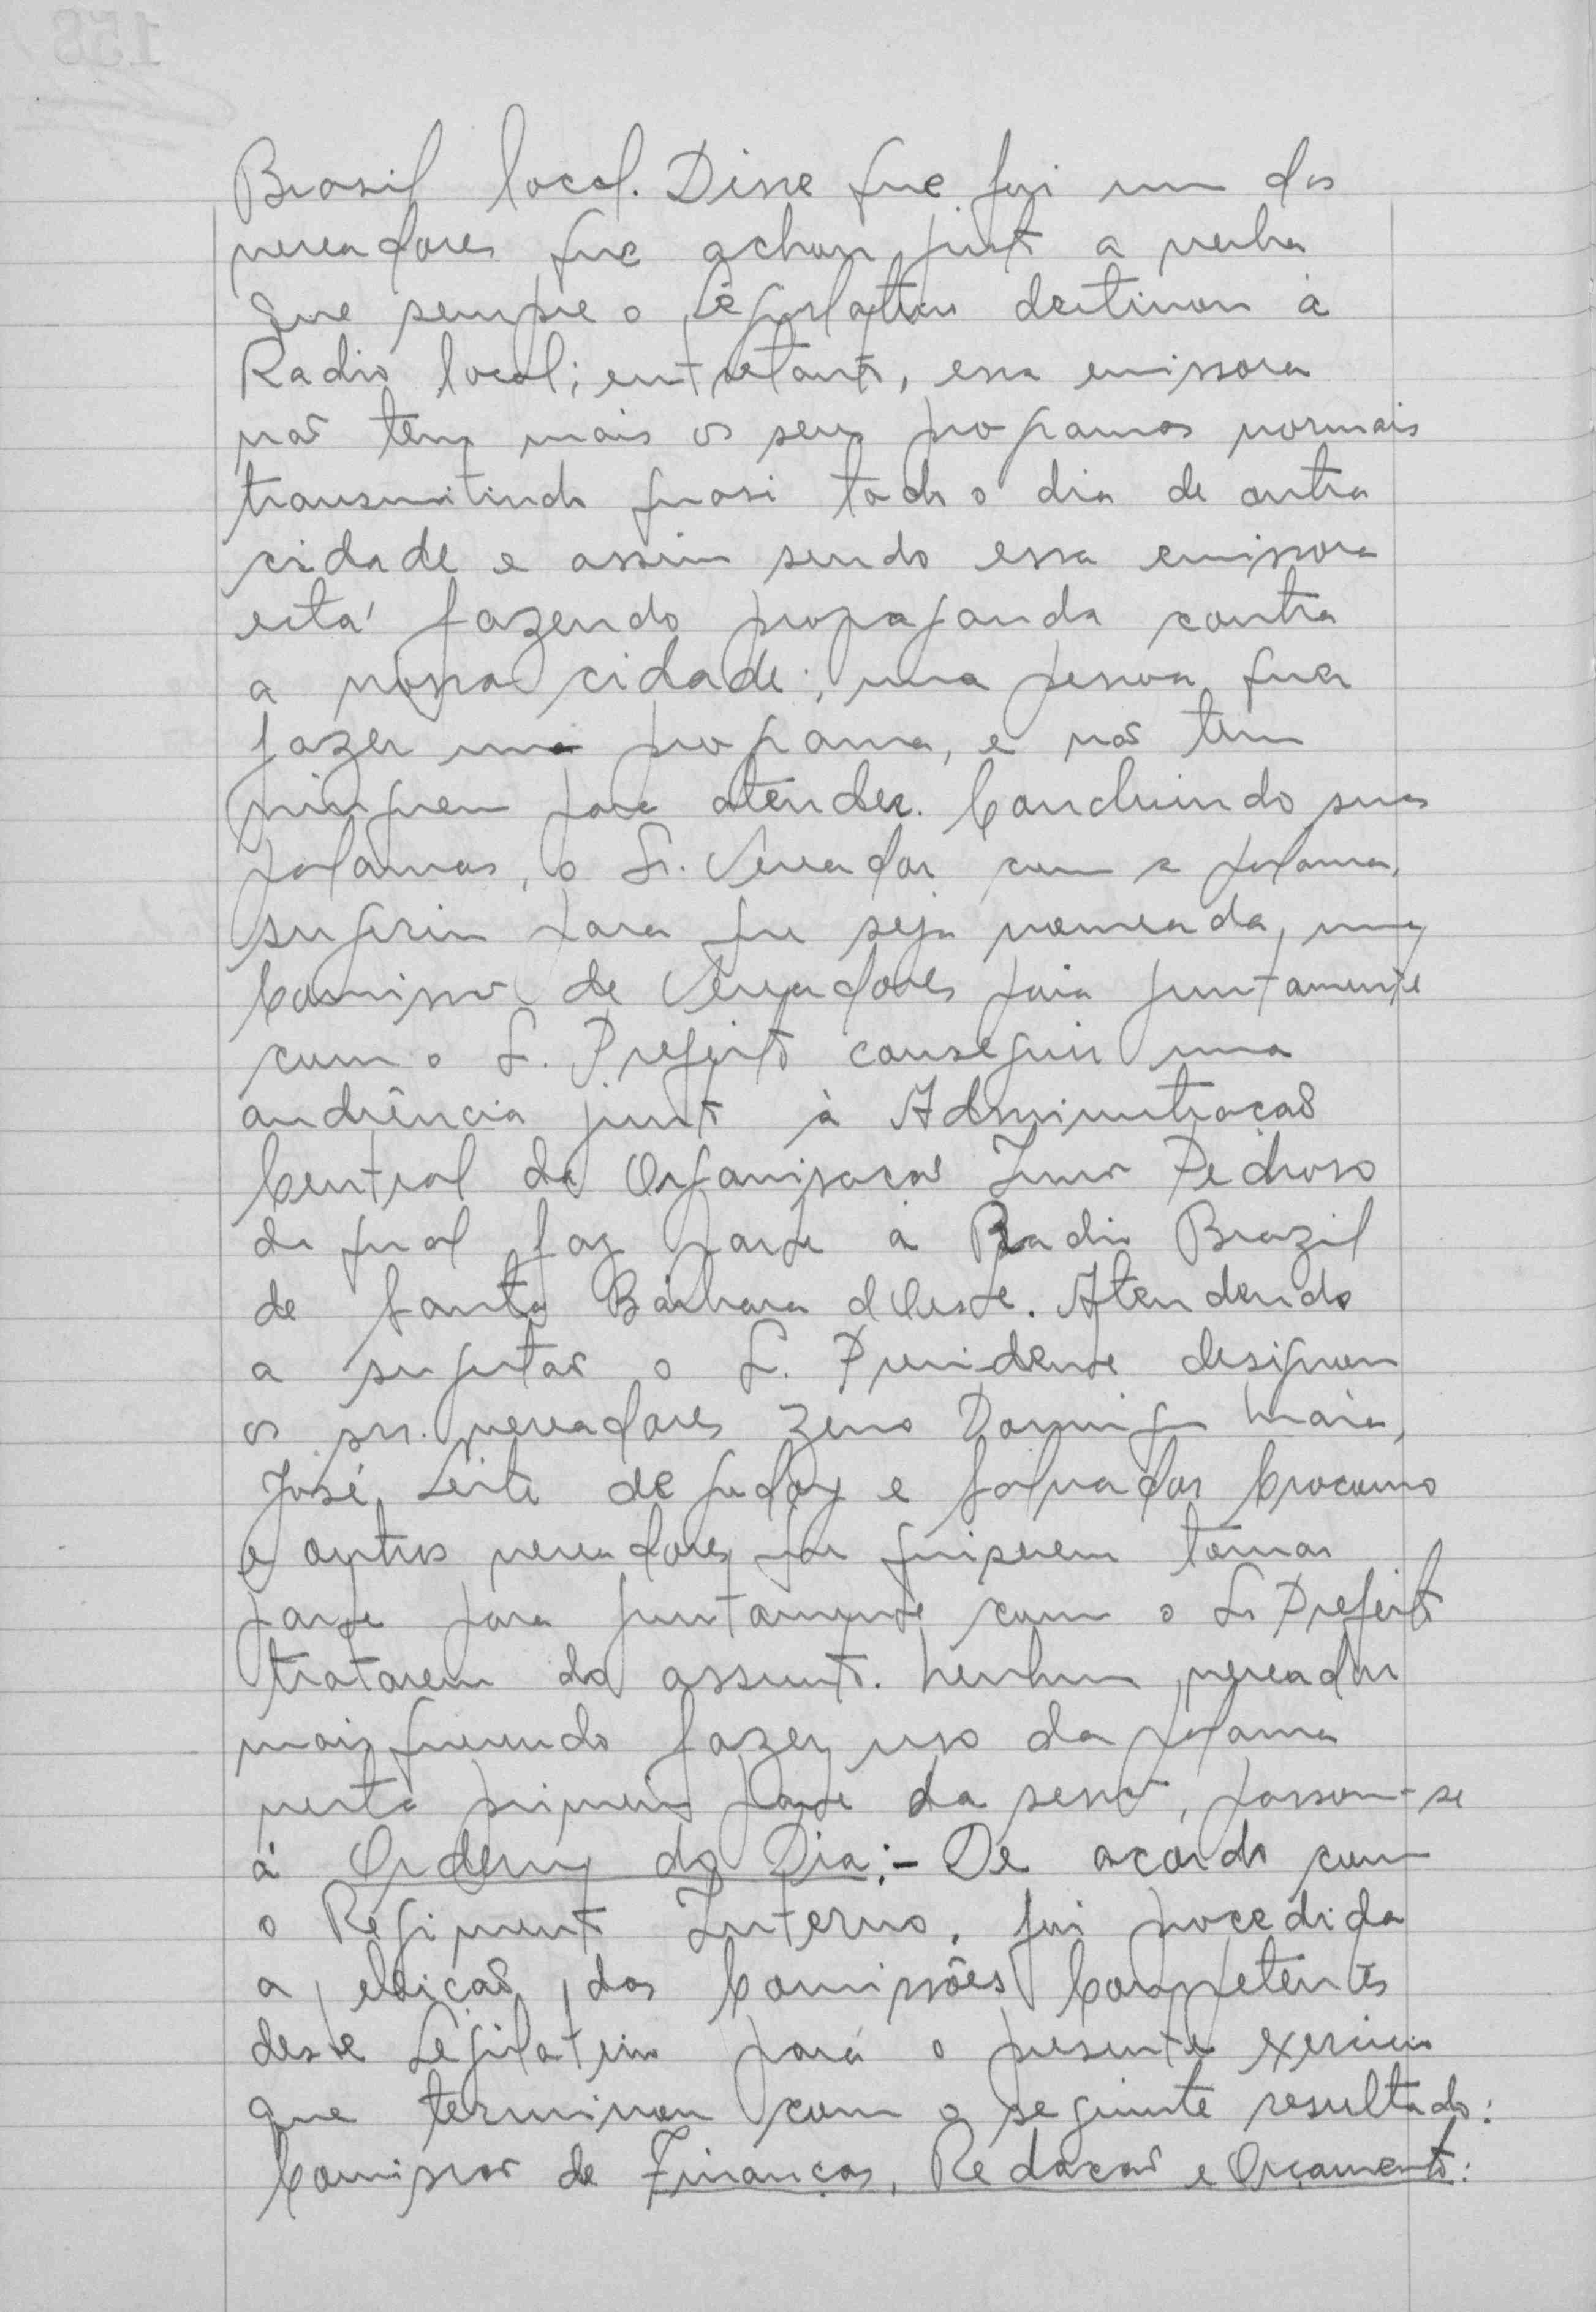 Brasil local. Disse que foi um dos
vereadores que achou justo a verba
que sempre o Legislativo destinou á
Radio local; entretanto, essa emissora
não tem mais os seus programas normais
transmitindo quasi todo o dia de outra
cidade e assim sendo essa emissora
está fazendo propaganda contra
a nossa cidade; uma pessoa quer
fazer um programa, e não tem
ninguem para atender. Concluindo suas
palavras, o Sr. Vereador com a palavra,
sugeriu para que seja nomeada, uma
Comissão de Vereadores para juntamente
com o Sr. Prefeito conseguir uma
audiência junto à Administração
Central da Organisação Pedroso
da qual faz parte a Radio Brazil
de Santa Bárbara d'Oeste. Atendendo
a sugestão o Sr. Presidente designou
os srs. vereadores Zeno Domingos Maia,
José Leite de Godoy e Salvador
e outros vereadores que quiserem tomar
parte para juntamente com o Sr Prefeito
tratarem do assunto. Nenhum vereador
mais querendo fazer uso da palavra
nesta primeira parte da sessão, passou-se
á Ordem do Dia:- De acordo com
o Regimento Interno, foi procedida
a eleição das Comissões Competentes
deste Legislativo para o presente exercicio
que terminou com o seguinte resultado:
Comissão de Finanças, Redação e Orçamento: